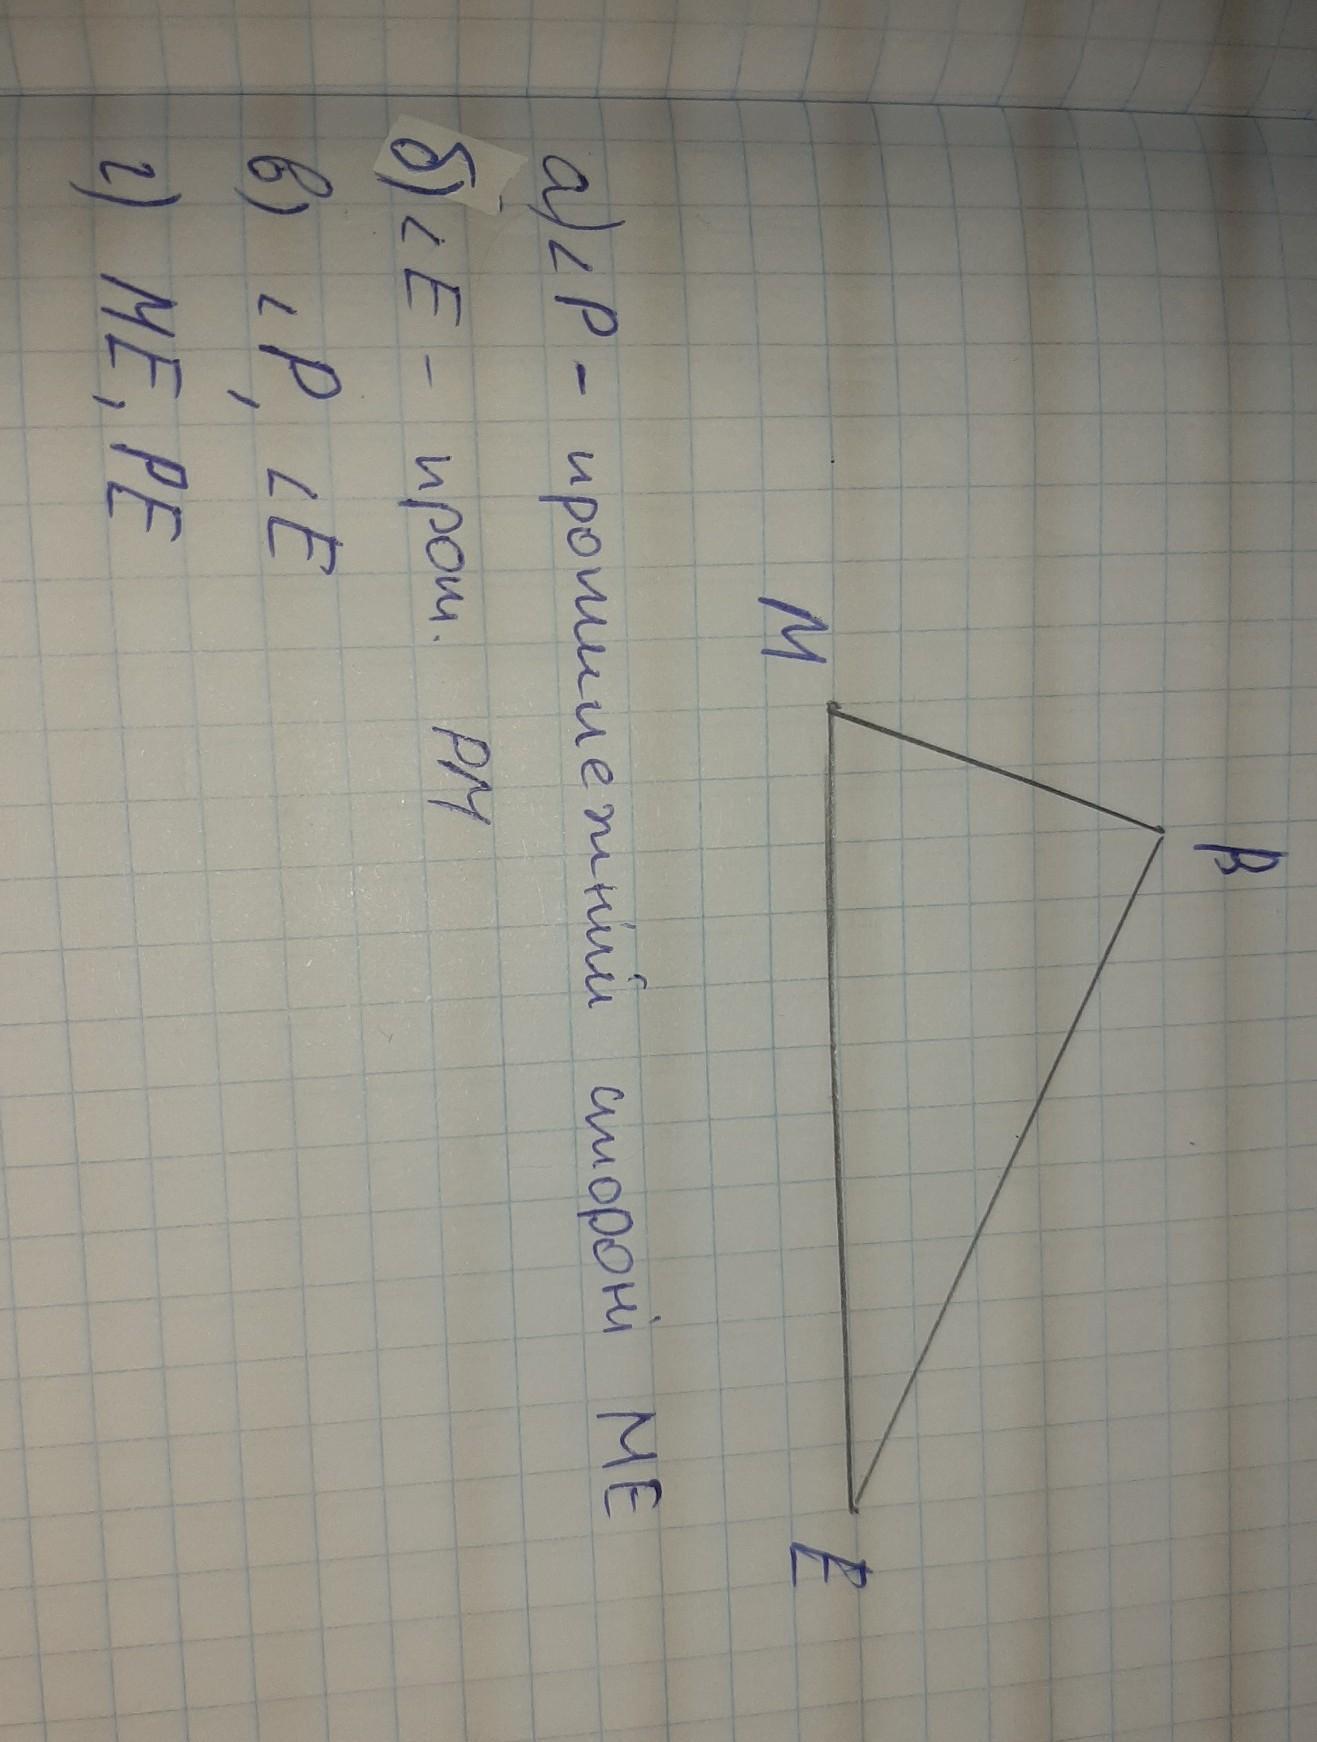 P
M
E
а) ∠P - протилежний стороні ME
б) ∠E - прот. PM
в) ∠P, ∠E
г) ME, PE